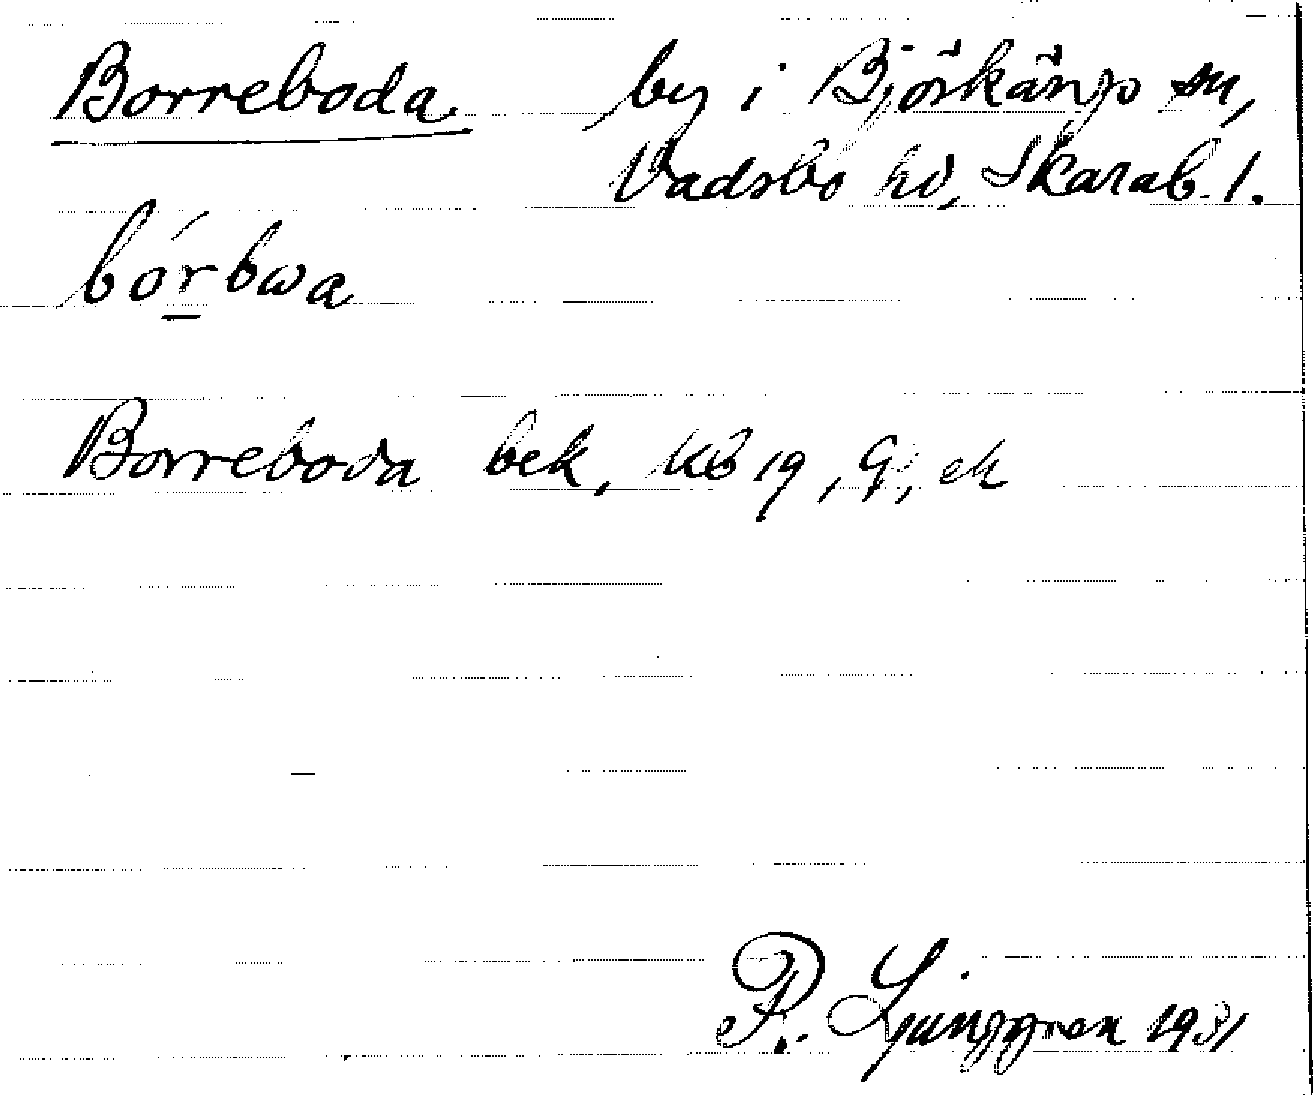 Borreboda by i Björkängs sn,
Vadsbo hd, Skarab. l.
bórbwa
Borreboda bek, KB 19, G, ek
R. Ljunggren 1931